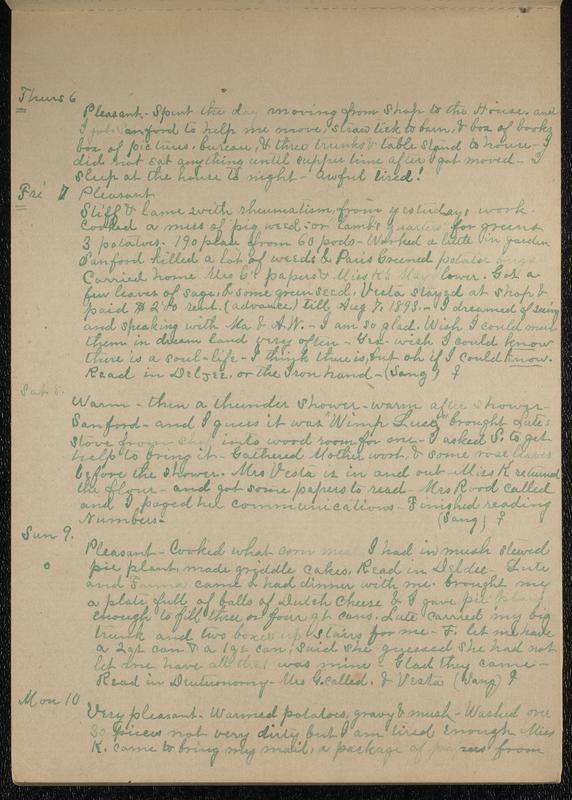 Thurs 6
Pleasant. Spent the day moving from shop to the House, and
I got Sanford to help me move, straw tick to barn, & box of books
box of pictures, bureau, & three trunks & table stand to house - I
did not eat anything until supper time after I got moved - I
sleep at the house to night - Awful tired!
Fri 7 Pleasant
Stiff & lame with rheumatism from yesterdays work
Cooked a mess of pig weed - or "lamb's quarters" for greens
3 potatoes. 190 peas from 60 pods - Worked a little in garden
Sanford killed a lot of weeds & Paris Greened potato bugs
Carried home Mrs C's papers & Miss K's May flower. Got a
few leaves of sage, & some green seed, Vesta stayed at shop &
paid $2.00 rent. (advance) till Aug 7, 1893. - I dreamed of seeing
and speaking with Ma & A.W. - I am so glad. Wish I could meet
them in dream land very often - Yes - wish I could know
there is a soul-life - I think there is, but oh if I could know.
Read in Deljee. or the Iron hand - (Sang)
Sat 8.
Warm - then a thunder shower - warm after shower -
Sanford - and I guess it was "Wimp Luce" brought Lute's
stove from shop into wood room for me - I asked S. to get
help to bring it - Gathered Mother wort, & some rose leaves
before the shower. Mrs Vesta is in and out - Miss K returned
the flour - and got some papers to read Mrs Rood called
and I paged her communications - Finished reading
Numbers - (Sang)
Sun 9.
Pleasant - Cooked what corn meal I had in mush stewed
pie plant, made griddle cakes. Read in Deldee - Lute
and came & had dinner with me - brought me
a plate full of balls of Dutch Cheese & I gave pie plant
enough to fill three or four qt cans. Lute carried my big
trunk and two boxes up stairs for me - F. let me have
a 2qt can & a 1qt can, said she guessed she had not
let me have all that was mine - Glad they came -
Read in Deutronomy - Mrs G. called. & Vesta (Sang)
Mon 10
Very pleasant. Warmed potatoes, gravy & mush - Washed over
30 pieces not very dirty but I am tired enough Miss
K. came to bring my mail, a package of papers from